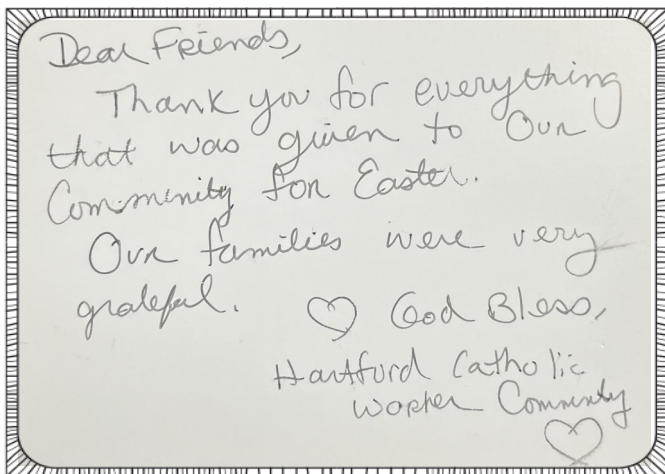 Dear Friends,
Thank you for everything
that was given to Our
Community for Easter.
Our families were very
grateful. ♡ God Bless,
Hartford Catholic
Worker Community
♡